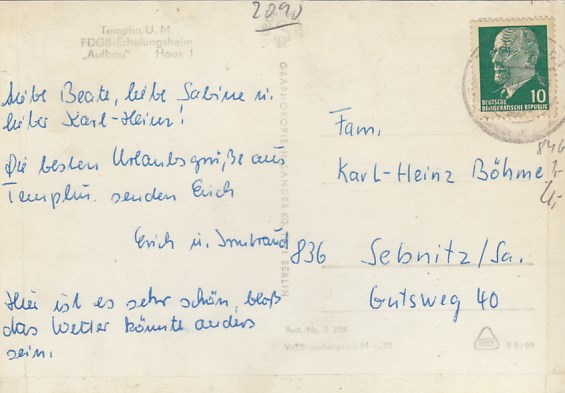 2090
Templin/U. M.
FDGB-Erholungsheim
„Aufbau" — Haus I
Liebe Beate, liebe Sabine u.
lieber Karl-Heinz!
Die besten Urlaubsgrüße aus
Templin senden Euch
Erich u. Irmtraud
Hier ist es sehr schön, bloß
das Wetter könnte anders
sein.
DEUTSCHE
DEMOKRATISCHE REPUBLIK
10
Fam.
Karl-Heinz Böhme
836 Sebnitz/Sa.
Gutsweg 40
BERLIN